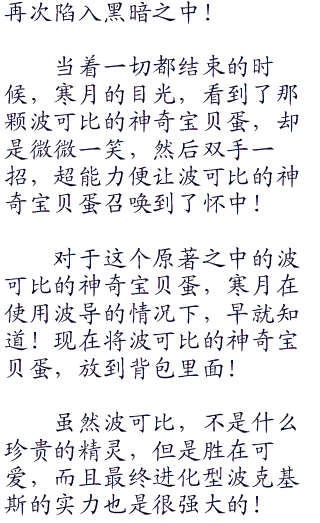 再次陷入黑暗之中！
当着一切都结束的时
候，寒月的目光，看到了那
颗波可比的神奇宝贝蛋，却
是微微一笑，然后双手一
招，超能力便让波可比的神
奇宝贝蛋召唤到了怀中！
对于这个原著之中的波
可比的神奇宝贝蛋，寒月在
使用波导的情况下，早就知
道！现在将波可比的神奇宝
贝蛋，放到背包里面！
虽然波可比，不是什么
珍贵的精灵，但是胜在可
爱，而且最终进化型波克基
斯的实力也是很强大的！